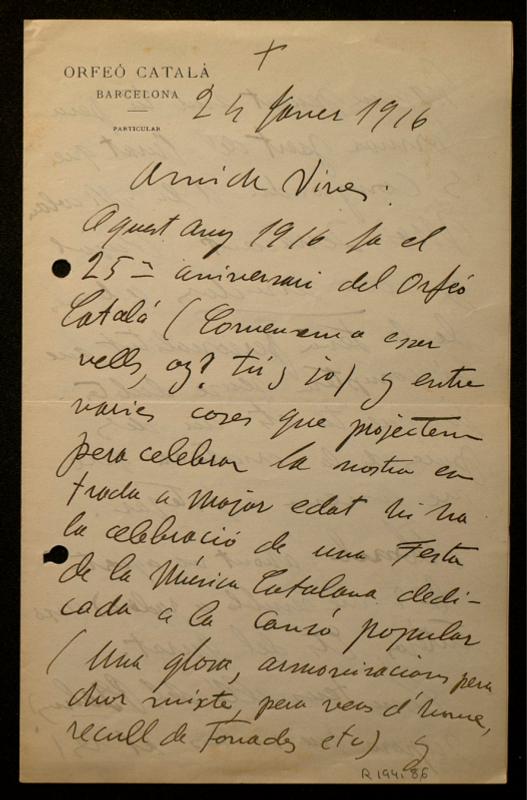 ORFEÓ CATALÀ
BARCELONA
PARTICULAR
24 Janer 1916
Amich Vives:
Aquest any 1916 fa el
25èn aniversari del Orfeó
Catalá (Comensem a esser
vells, oy? tú y jo) y entre
varies coses que projectem
pera celebrar la nostra en
trada a major edat hi ha
la celebració de una Festa
de la Música Catalana dedi-
cada a la cansó popular
(Una glosa, armonisacions pera
chor mixte, pera veus d'home,
recull de Tonades etc) y
R 194.86